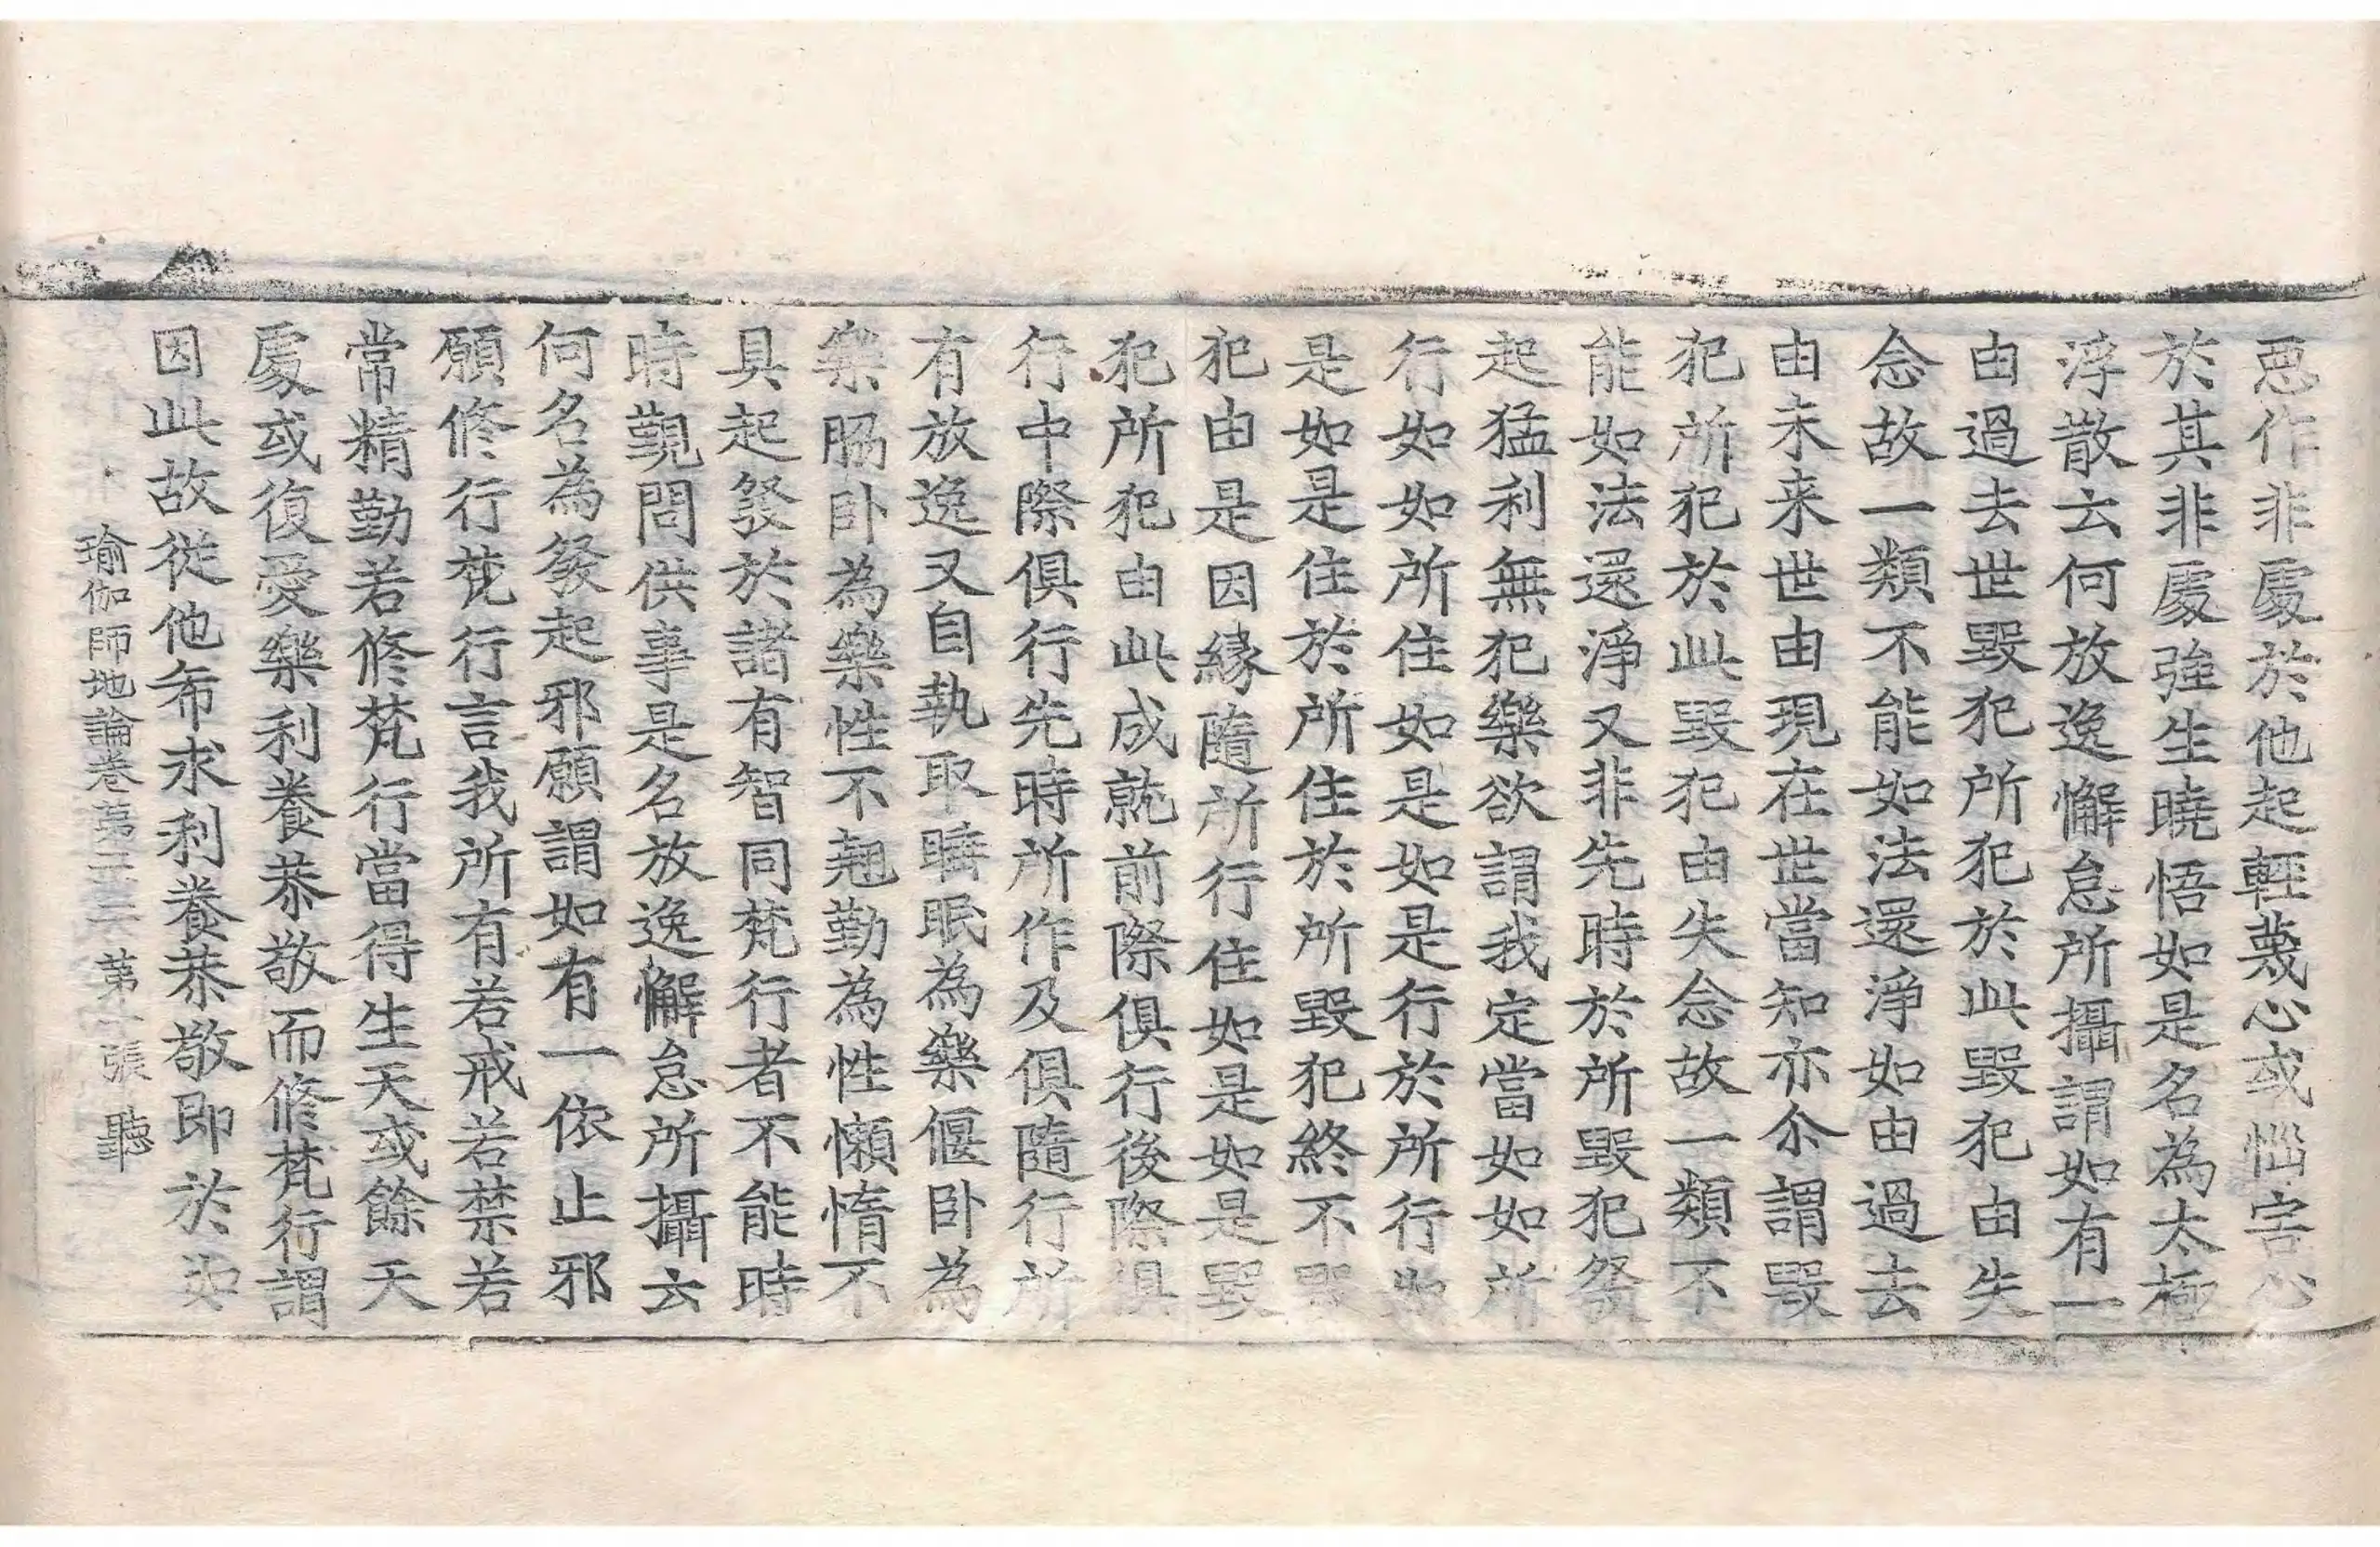 惡作非處於他起輕蔑心或惱害心
於其非處強生曉悟如是名為太極
浮散云何放逸懈怠所攝謂如有一
由過去世毀犯所犯於此毀犯由失
念故一類不能如法還淨如由過去
由未来世由現在世當知亦尒謂毀
犯所犯於此毀犯由失念故一類不
能如法還淨又非先時於所毀犯發
起猛利無犯樂欲謂我定當如如所
行如如所住如是如是行於所行如
是如是住於所住於所毀犯終不毀
犯由是因緣隨所行住如是如是毀
犯所犯由此成就前際俱行後際俱
行中際俱行先時所作及俱隨行所
有放逸又自執取睡眠為樂偃卧為
樂脇卧為樂性不翹勤為性懶惰不
具起發於諸有智同梵行者不能時
時覲問供事是名放逸懈怠所攝云
何名為發起邪願謂如有一依止邪
願修行梵行言我所有若戒若禁若
常精勤若修梵行當得生天或餘天
處或復愛樂利養恭敬而修梵行謂
因此故從他希求利養恭敬即於如
瑜伽師地論卷第二十三 第張 聽